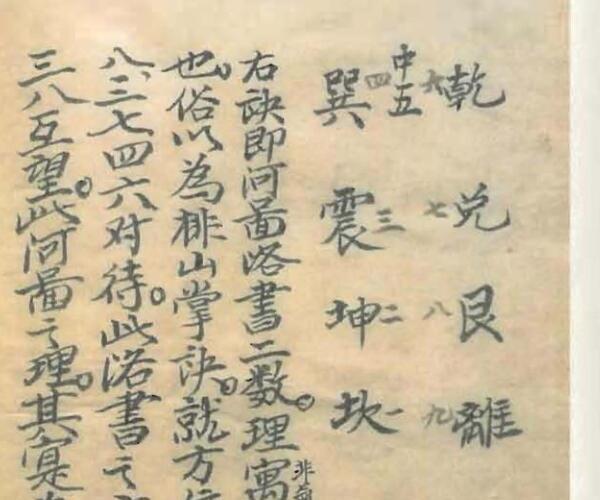 乾六 兑七 艮八 離九
中五
巽四 震三 坤二 坎一
右訣即河畾洛書二数。理寓
也。俗以為排山掌訣。就方
八、二七四六对待。此洛書之
三八互望。此河畾之理。其寔